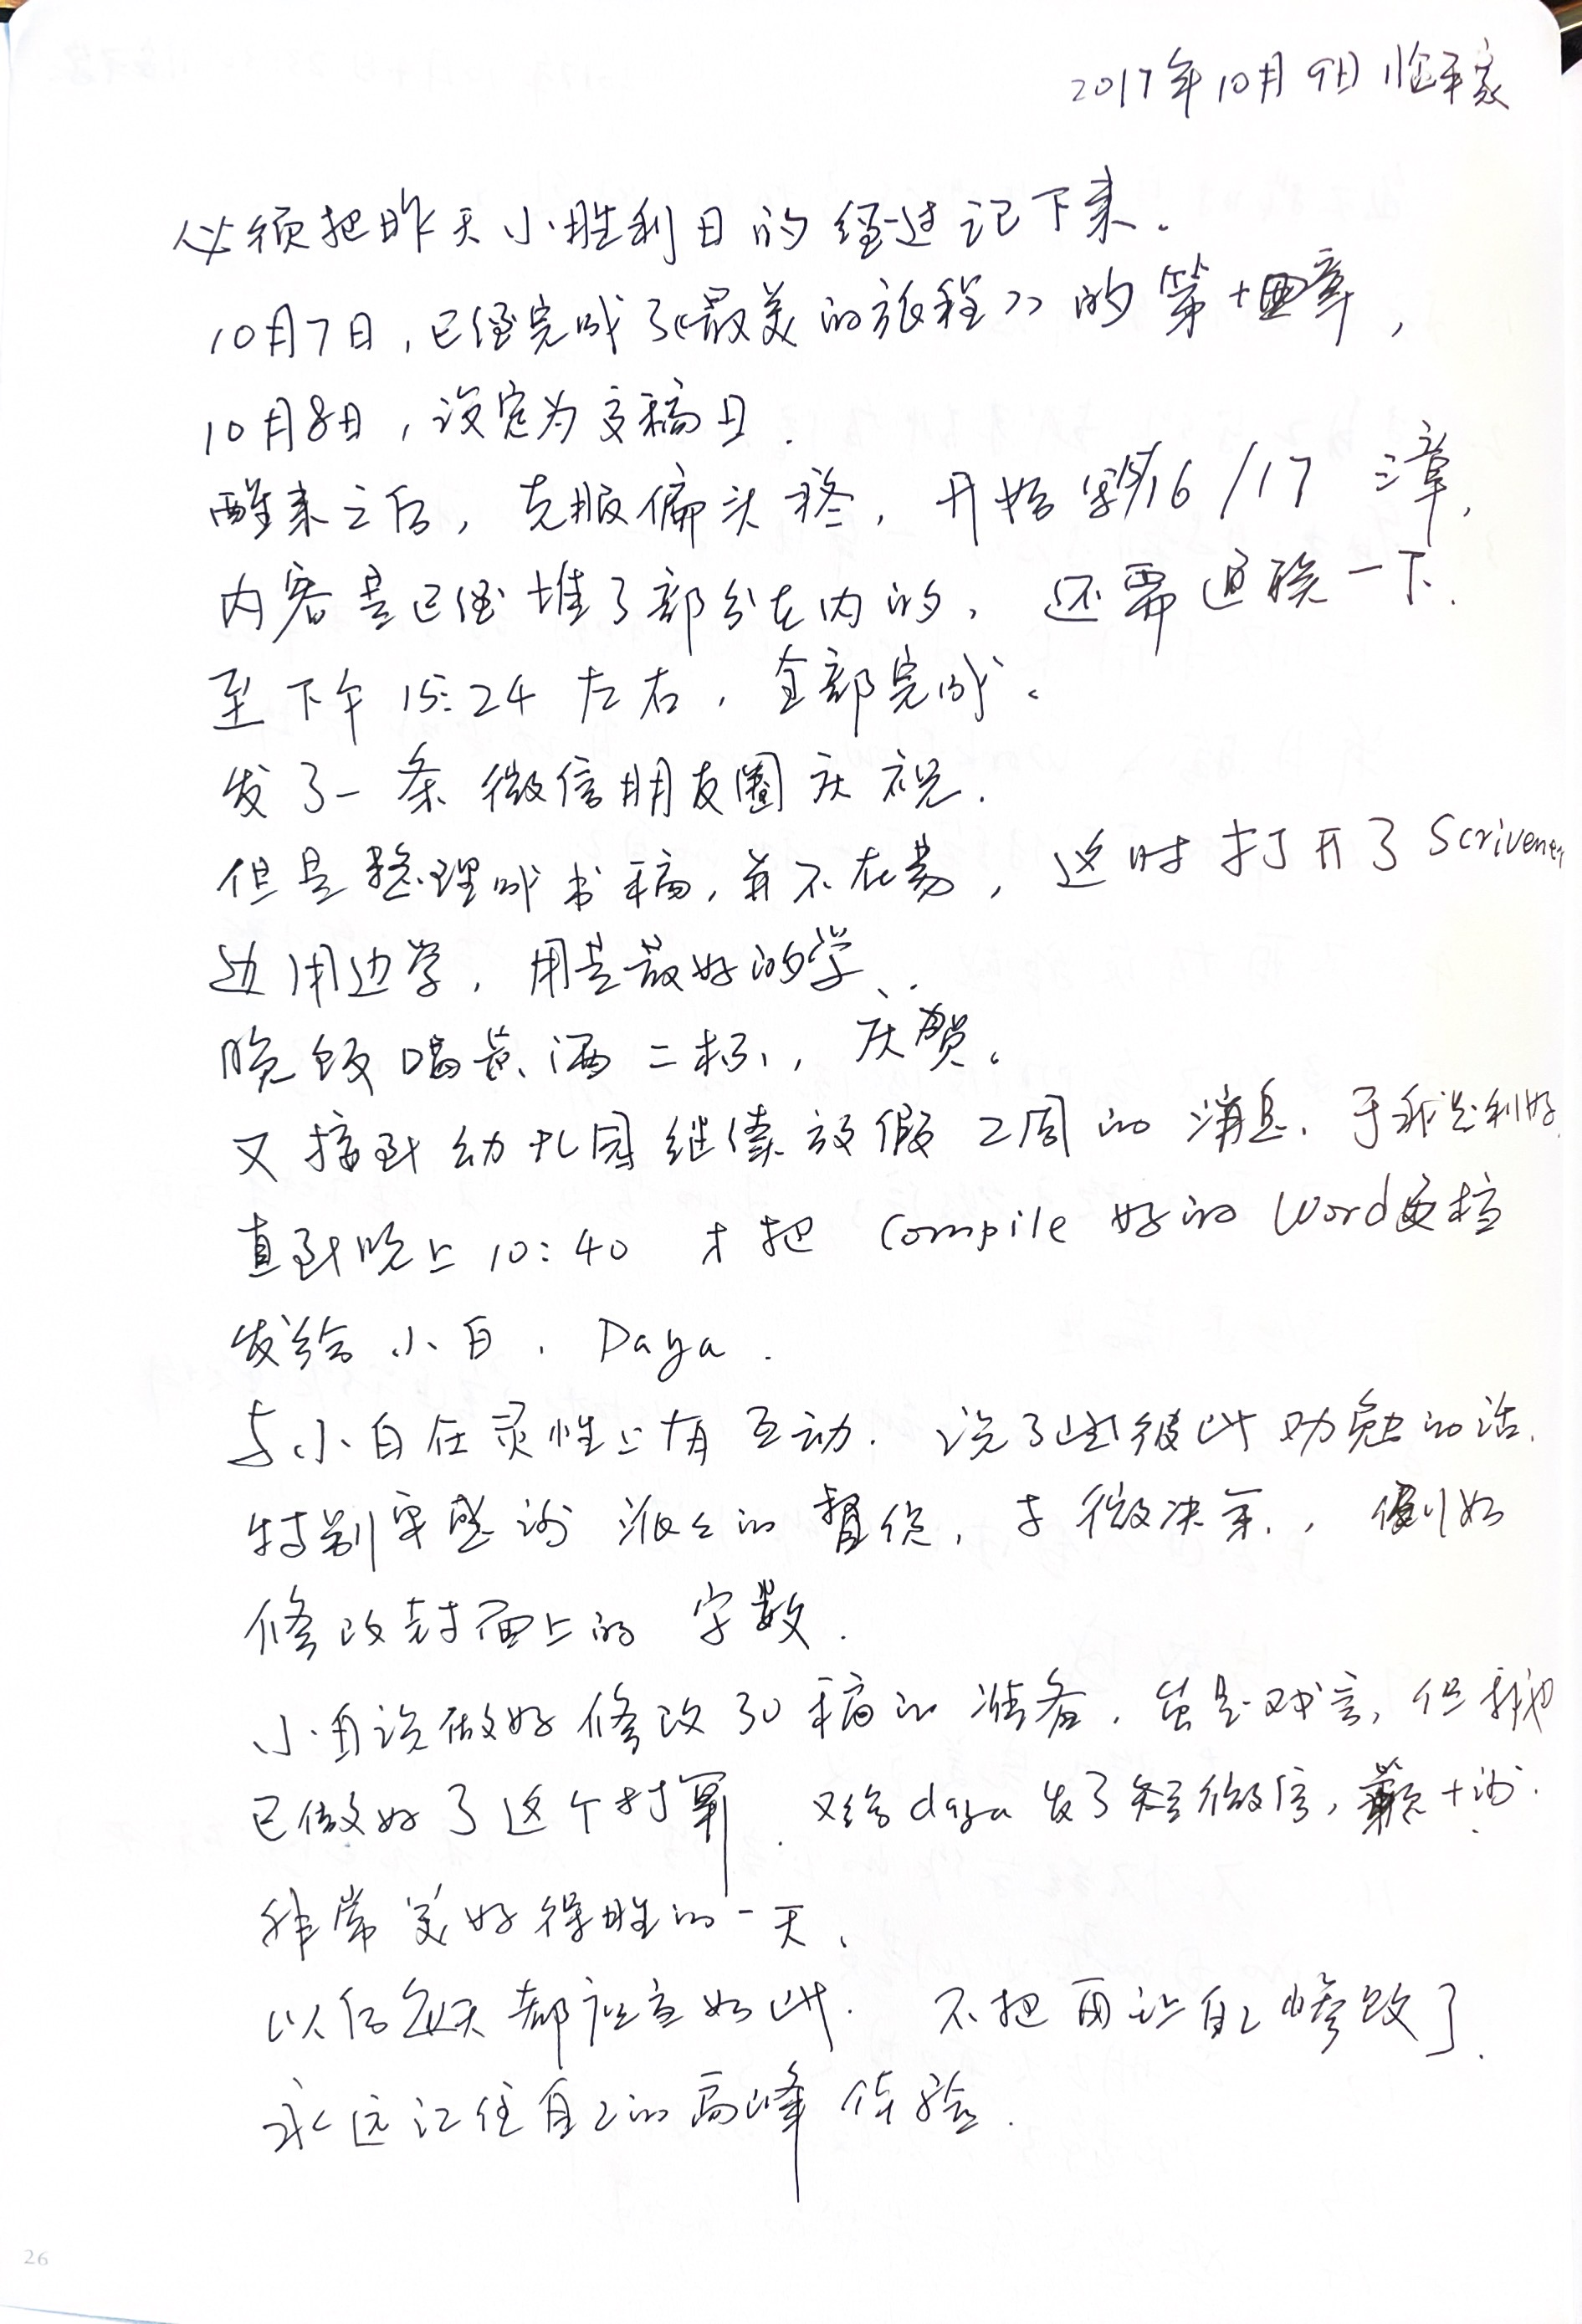 2017年10月9日 临平家
必须把昨天小胜利日的经过记下来。
10月7日,已经完成了《最美的旅程》的第十四章,
10月8日,设定为交稿日.
醒来之后,克服偏头疼,开始写16/17 三章,
内容是已经堆了部分在内的,还需通联一下.
至下午15:24左右,全部完成。
发了一条微信朋友圈庆祝.
但是整理成书稿,并不在易,这时打开了Scrivener
边用边学,用是最好的学、.
晚饭喝黄酒二杯,庆贺。
又接到幼儿园继续放假2周的消息、于我是利好.
直到晚上10:40 才把 Compile 好的 Word文档
发给小白.Daya.
与小白在灵性上有互动.说了些彼此劝勉的话.
特别要感谢派的督促,于微决策,例如
修改封面上的字数.
小白说做好修改30稿的准备.虽是戏言,但我也
已做好了这个打算.又给daya发了短微信,十分.
非常美好得胜的一天、
以后每天都应如此.不把再让自己惨败了.
永远记住自己的高峰体验.
26